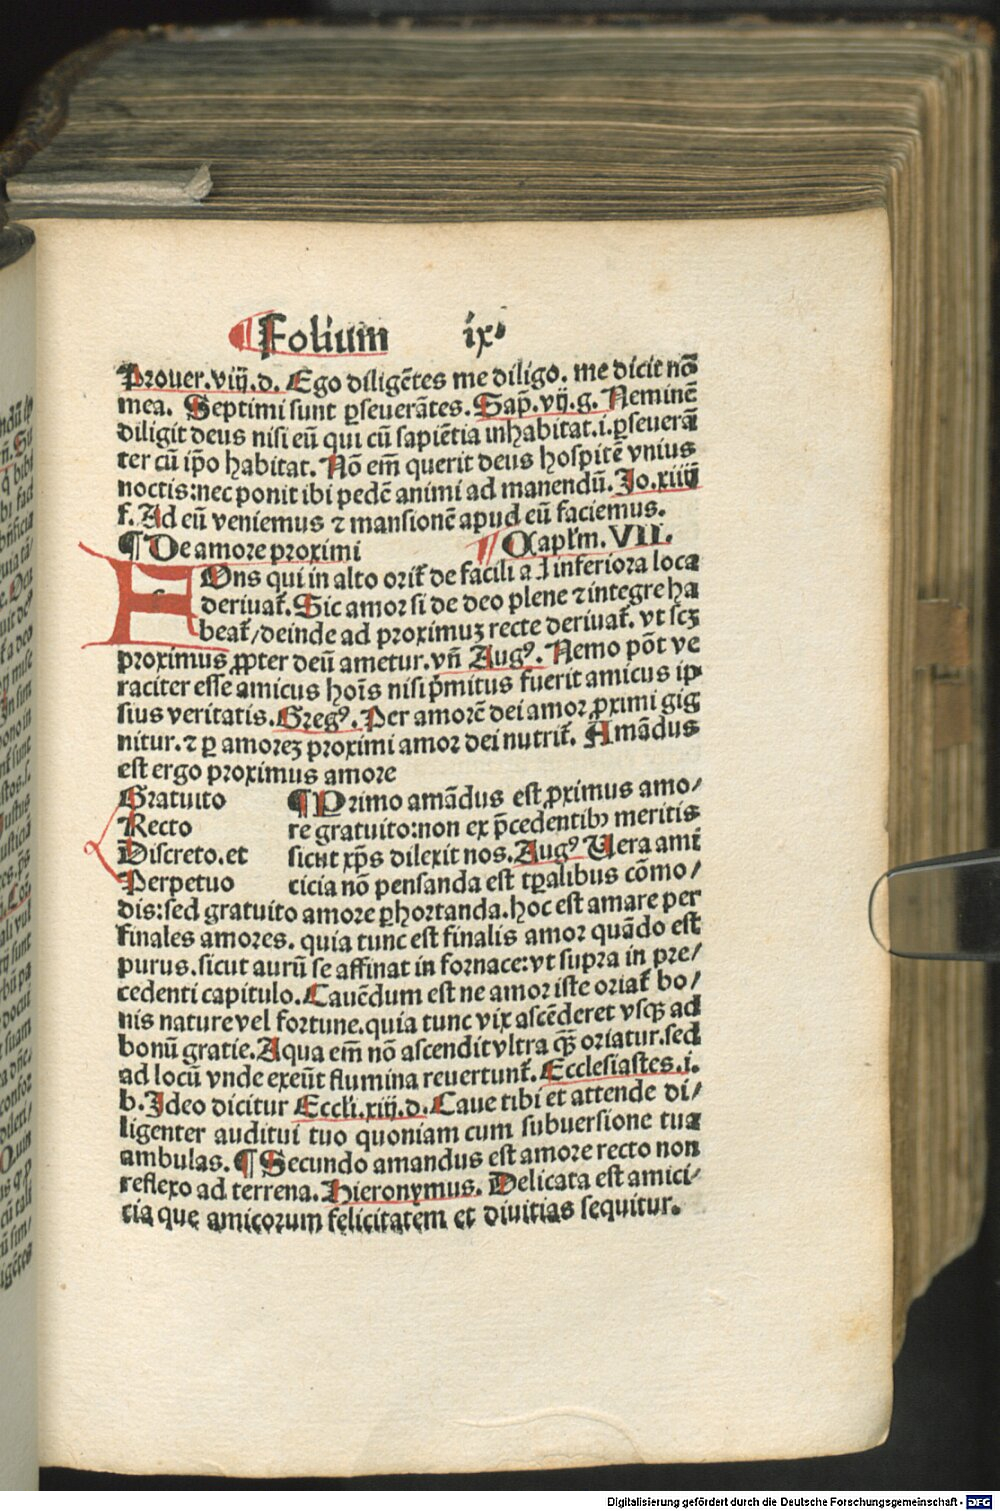 Folium ix.
Prouer.viij.d. Ego diligētes me diligo. me dicit nō
mea. Septimi sunt ꝑseuerātes. Sap̄.vij.g. Neminē
diligit deus nisi eū qui cū sapiētia inhabitat.i.ꝑseuerā
ter cū ip̄o habitat. Nō em̄ querit deus hospitē vnius
noctis:nec ponit ibi pedē animi ad manendū. Jo.xiiij
f. Ad eū veniemus ⁊ mansionē apud eū faciemus.
¶ De amore proximi ¶ Capl̄m. VII.
FOns qui in alto orit̄ de facili ad inferiora loca
deriuat̄. Sic amor si de deo plene ⁊ integre ha
beat̄/deinde ad proximuꝫ recte deriuat̄. vt scꝫ
proximus ꝓpter deū ametur. vn̄ Augꝰ. Nemo pōt ve
raciter esse amicus hoīs nisi p̄mitus fuerit amicus ip
sius veritatis. Gregꝰ. Per amorē dei amor ꝓximi gig
nitur. ⁊ ꝑ amoreꝫ proximi amor dei nutrit̄. Amādus
est ergo proximus amore
Gratuito
Recto
Discreto. et
Perpetuo
¶ Primo amādus est ꝓximus amo/
re gratuito:non ex p̄cedentibꝰ meritis
sicut xp̄s dilexit nos. Augꝰ Uera ami
cicia nō pensanda est tp̄alibus cōmo/
dis:sed gratuito amore ꝑhortanda. hoc est amare per
finales amores. quia tunc est finalis amor quādo est
purus. sicut aurū se affinat in fornace:vt supra in pre/
cedenti capitulo. Cauēdum est ne amor iste oriat̄ bo/
nis nature vel fortune. quia tunc vix ascēderet vsqꝫ ad
bonū gratie. Aqua em̄ nō ascendit vltra qꝫ̄ oriatur. sed
ad locū vnde exeūt flumina reuertunt̄. Ecclesiastes.i.
b. Ideo dicitur Eccli.xiij.d. Caue tibi et attende di/
ligenter auditui tuo quoniam cum subuersione tua
ambulas. ¶ Secundo amandus est amore recto non
reflexo ad terrena. Hieronymus. Delicata est amici/
cia que amicorum felicitatem et diuitias sequitur.
Digitalisierung gefördert durch die Deutsche Forschungsgemeinschaft - DFG